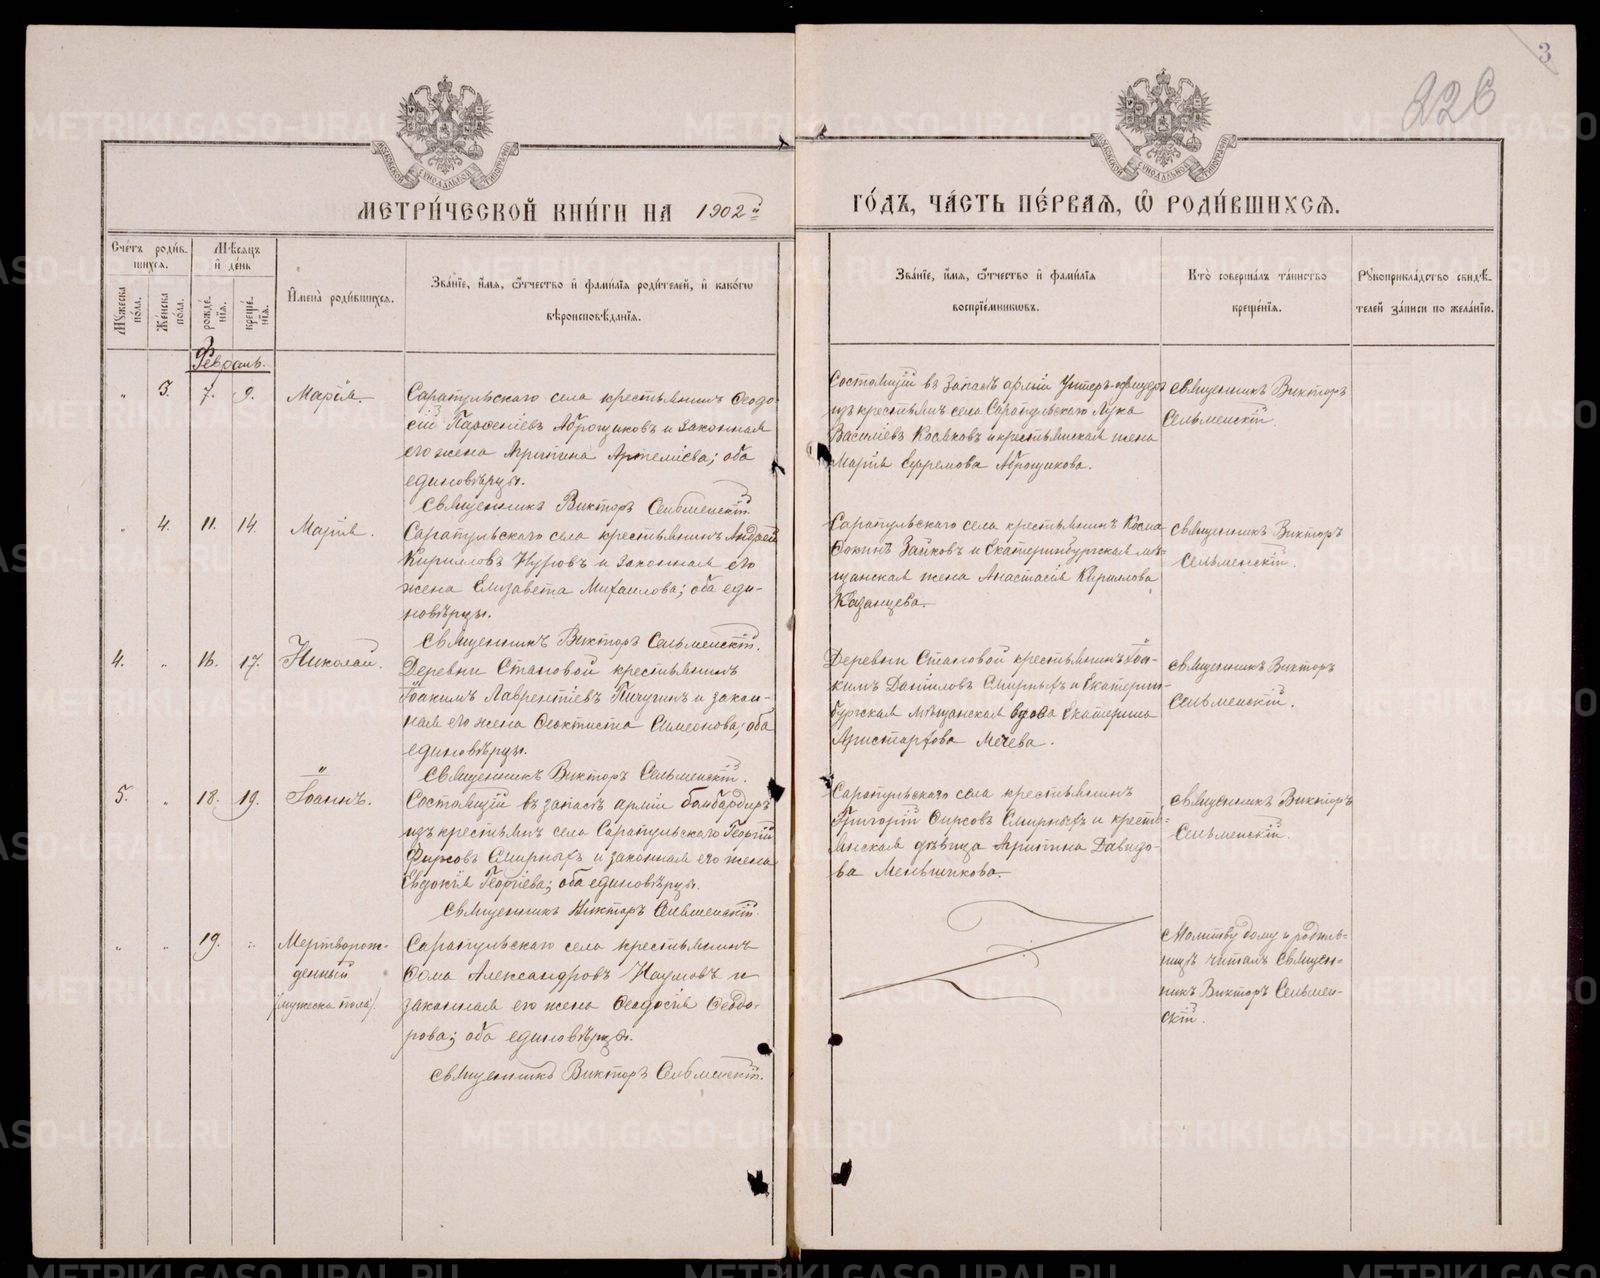 3
226
МЕТРИ́ЧЕСКОЙ КНИ́ГИ НА 1902й
ГО́ДЪ, ЧА́СТЬ ПЕ́РВАѦ, Ѽ РОДИ́ВШИХСѦ.
Сче́тъ роди́в-
шихсѧ.
Мꙋ́жеска по́ла.
Же́нска по́ла.
Мѣ́сѧцъ и҆ де́нь
рожде́нїѧ.
креще́нїѧ.
И҆мена̀ роди́вшихсѧ.
Зва́нїе, и҆́мѧ, ѻ҆́тчество и҆ фами́лїѧ роди́телей, и҆ како́гѡ
вѣроисповѣ́данїѧ.
Зва́нїе, и҆́мѧ, ѻ҆́тчество и҆ фами́лїѧ
воспрїе́мникѡвъ.
Кто̀ соверша́лъ та́инство
креще́нїѧ.
Рꙋкоприкла́дство свидѣ́-
телей за́писи по жела́нїю.
Февраль.
" 3. 7. 9. Марія.
Сарапульскаго села крестьянинъ Ѳеодо-
сій Парѳеніевъ Аброщиковъ и законная
его жена Агрипина Артеміева; оба
единовѣрцы.
Священникъ Викторъ Сельменскій.
Состоящій въ запасѣ арміи Унтеръ-офицеръ
изъ крестьянъ села Сарапульскаго Лука
Василіевъ Косяковъ и крестьянская жена
Марія Ефремова Аброщикова.
Священникъ Викторъ
Сельменскій.
" 4. 11. 14. Марія.
Сарапульскаго села крестьянинъ Андрей
Кирилловъ Нуровъ и законная его
жена Елизавета Михаилова; оба еди-
новѣрцы.
Священникъ Викторъ Сельменскій.
Сарапульскаго села крестьянинъ Косма
Ѳокинъ Зайковъ и Екатеринбургская мѣ-
щанская жена Анастасія Кириллова
Казанцева.
Священникъ Викторъ
Сельменскій.
4. " 16. 17. Николай.
Деревни Становой крестьянинъ
Іоакимъ Лаврентіевъ Пичугинъ и закон-
ная его жена Ѳеоктиста Симеонова; оба
единовѣрцы.
Священникъ Викторъ Сельменскій.
Деревни Становой крестьянинъ Іоа-
кимъ Даниловъ Смирныхъ и Екатерин-
бургская мѣщанская вдова Екатерина
Аристархова Мечева.
Священникъ Викторъ
Сельменскій.
5. " 18. 19. Іоаннъ.
Состоящій въ запасѣ арміи бомбардиръ
изъ крестьянъ села Сарапульскаго Георгій
Фирсовъ Смирныхъ и законная его жена
Евдокія Георгіева; оба единовѣрцы.
Священникъ Викторъ Сельменскій.
Сарапульскаго села крестьянинъ
Григорій Фирсовъ Смирныхъ и кресть-
янская дѣвица Агрипина Давидо-
ва Меньшикова.
Священникъ Викторъ
Сельменскій.
" " 19. " Мертворож-
денный
(мужеска пола).
Сарапульскаго села крестьянинъ
Ѳома Александровъ Наумовъ и
законная его жена Ѳеодосія Ѳеодо-
рова; оба единовѣрцы.
Священникъ Викторъ Сельменскій.
Молитву дому и родиль-
ницѣ читалъ Священ-
никъ Викторъ Сельмен-
скій.
METRIKI.GASO-URAL.RU